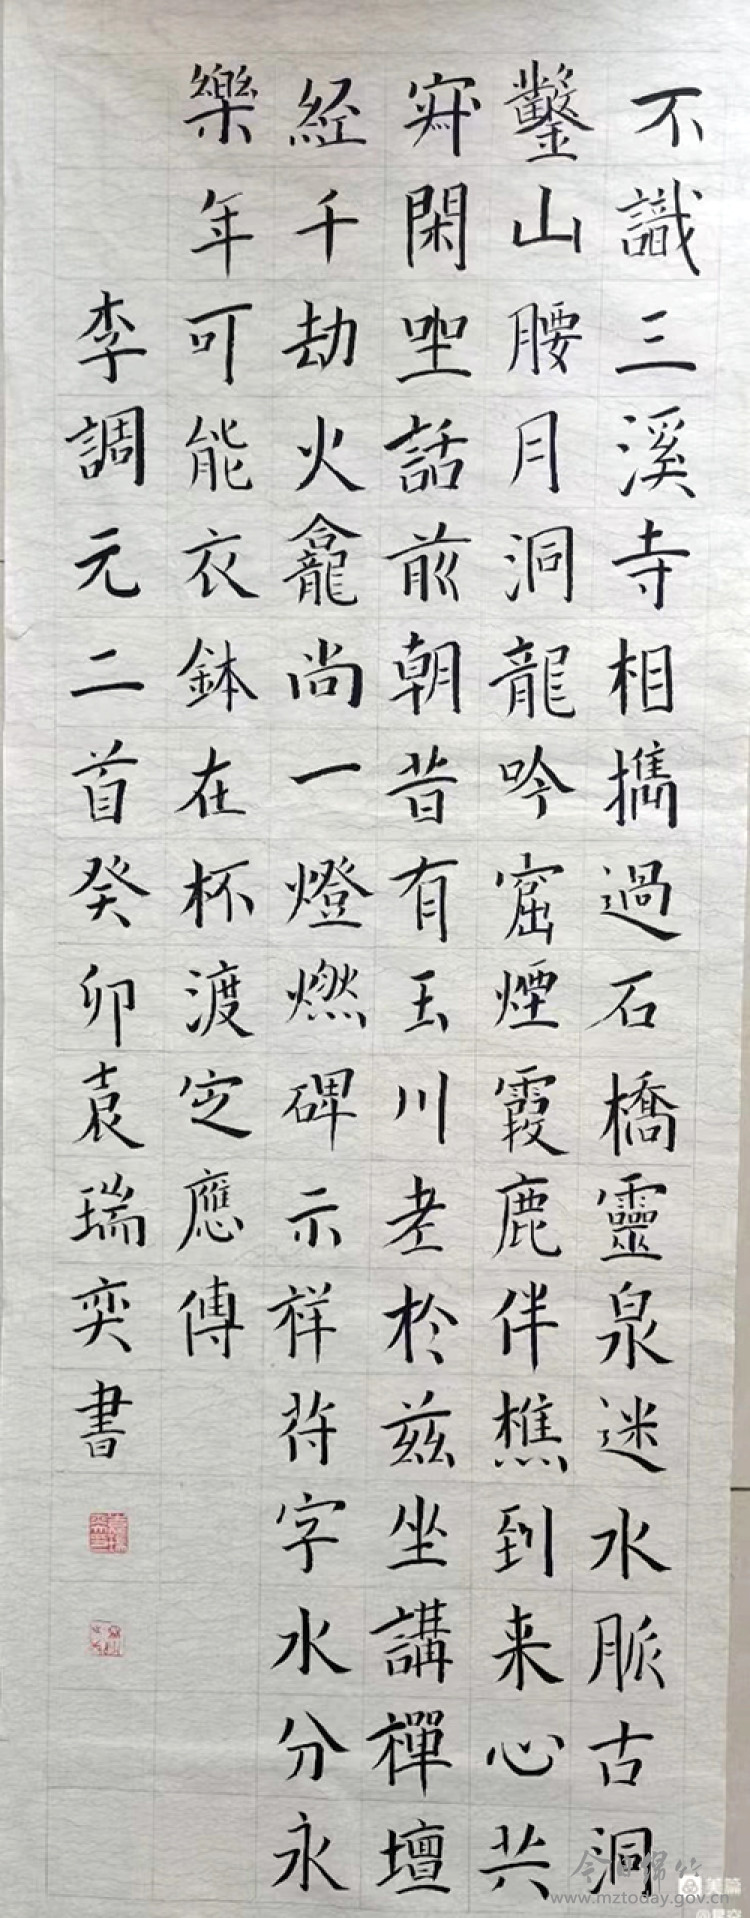 不識三溪寺相攜過石橋靈泉迷水脈古洞
鑿山腰月洞龍吟窟煙霞鹿伴樵到来心共
寂閑坐話前朝昔有玉川老於兹坐講禪壇
経千劫火龕尚一燈燃碑示祥符字水分永
樂年可能衣鉢在杯渡定應傳
李調元二首癸卯袁瑞奕書
今日绵竹
www.mztoday.gov.cn
美篇